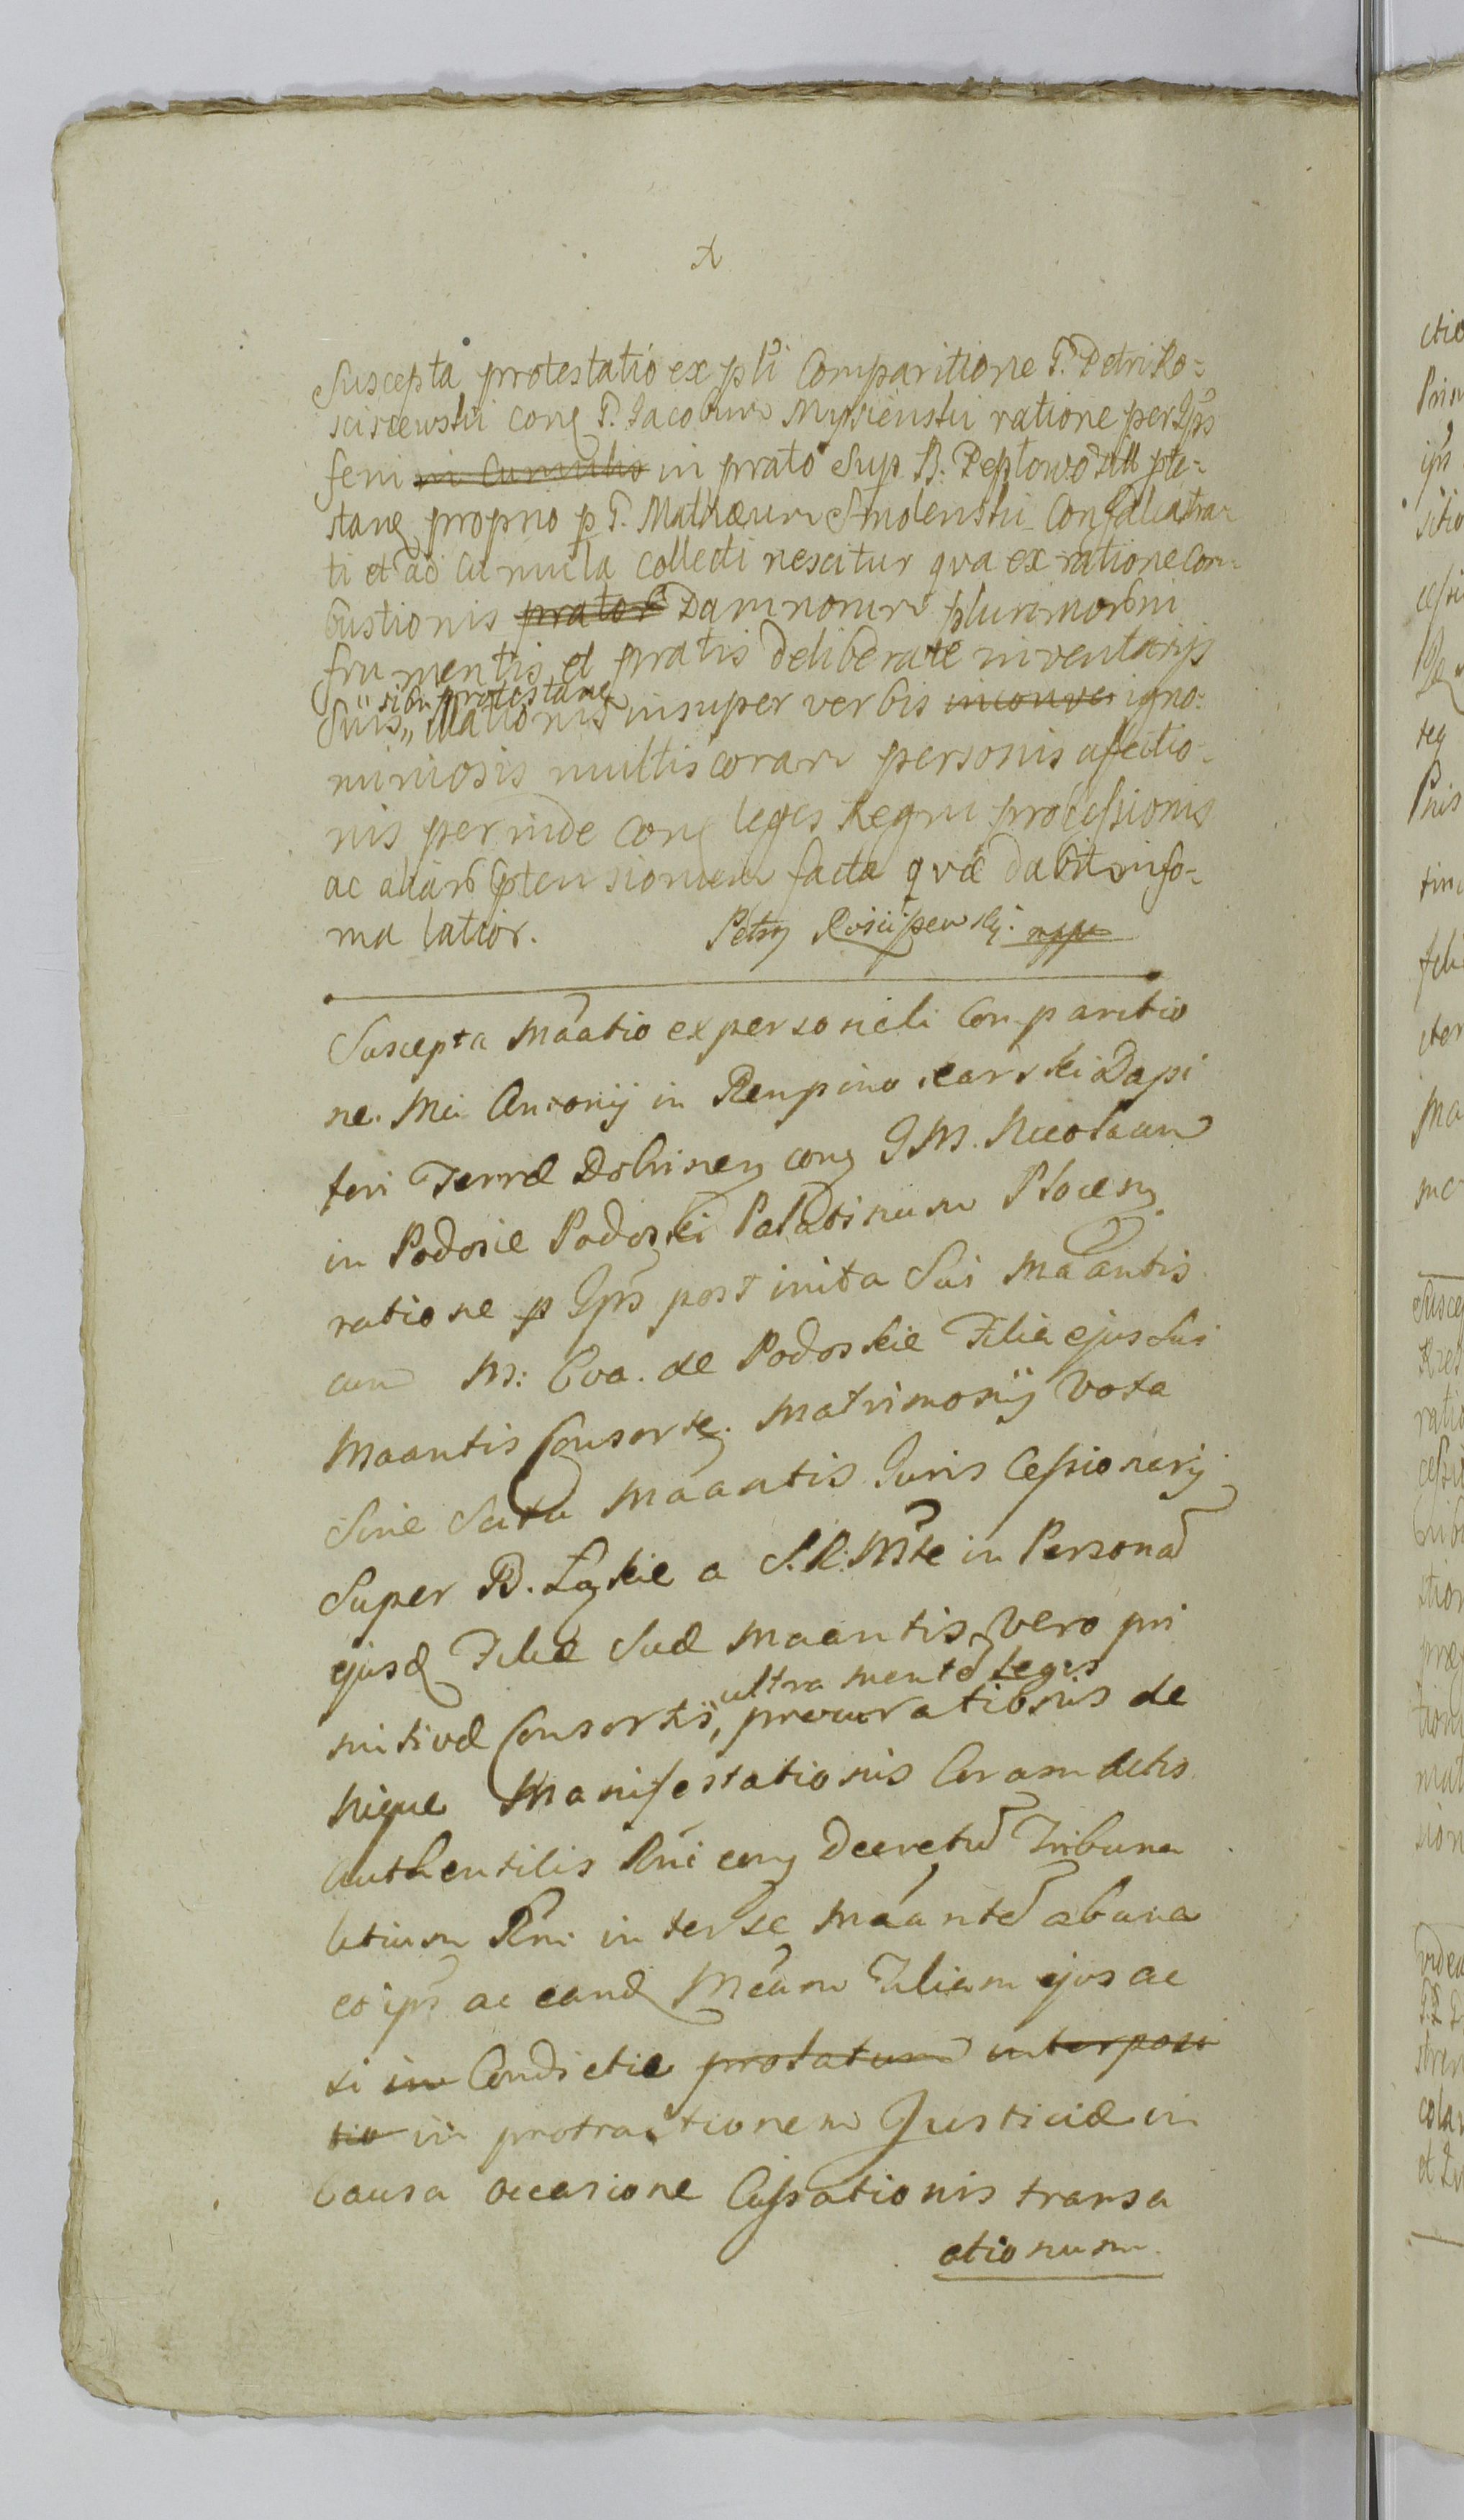 Suscepta protestatio ex pli Comparitione G. Petri Ko-
sciszewski cong G. Jacobum Mysienski ratione per Ips
feni in Cumulis in prato Sup. B. Peptowo Sitt pte-
stang proprio p G. Mathæum Smolenski Confalcastra-
ti et ad Cumula collecti nescitur qva ex ratione Com-
bustionis prator Damnorum plurimorb in
frumentis et pratis deliberate inventarijs
sibi protestane
Suis,, illationis insuper verbis inconve igno-
miniosis multis coram personis afectio-
nis perinde cong leges Regni processionis
ac aliarb ptensionem facta qvæ dabit info-
ma latior. Petry Kosciszewsky. mppa
Suscepta Maatio ex personali Comparitio
ne. Mci Antonij in Rempino karski Dapi
feri Terræ Dobrineng cong I M. Nicolaum
in Podosie Podoski Palatinum Ploceng
ratione p Ips post inita Sui Maantis
cum M: Eva. de Podoskie Filia ejus Sui
Maantis Consorte. Matrimonij Vota
Sine Scitu Maantis Iuris Cessionarij
Super B. Łęskie a S.R. Mte in Personam
ejusd Filiæ Suæ Maantis vero pri
ultra mentem legis
mitivæ Consortis,, procurationis de
nique Manifestationis Coram Actis
Authenticis Rni cong Decretum Tribuna
litium Rni inter se Maantem ab una
et ips ac eand Mcam Filiam ejus ac
si in Condictie prolatum interposi
tio in protractionem Justiciæ in
Causa occasione Cassationis transa
ctionum